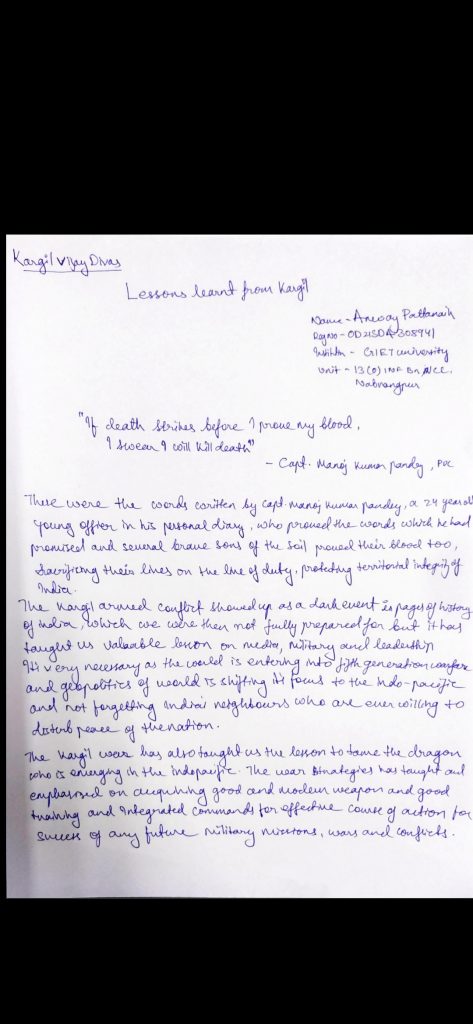 Kargil Vijay Divas
Lessons learnt from Kargil
Name - Pattanaik
Regno - OD21SDA308941
Institn - GIET university
Unit - 13 (O) INF Bn NCC,
Nabrangpur
"If death strikes before I prove my blood,
I swear I will kill death"
- Capt. Manoj Kumar pandey, PVC
These were the words written by capt. manoj kumar pandey, a 24 year old
young officer in his personal diary, who proved the words which he had
promised and several brave sons of the soil proved their blood too,
sacrificing their lives on the line of duty, protecting territorial integrity of
India.
The Kargil armed conflict showed up as a dark event in pages of history
of india, which we were then not fully prepared for but it has
taught us valuable lesson on media, military and leadership
It's very necessary as the world is entering into fifth generation warfare
and geopolitics of world is shifting it's focus to the Indo-pacific
and not forgetting India's neighbours who are ever willing to
disturb peace of the nation.
The Kargil war has also taught us the lesson to tame the dragon
who is emerging in the indopacific. The war strategies has taught and
emphasized on acquiring good and modern weapon and good
training and Integrated commands for effective course of action for
success of any future military missions, wars and conflicts.